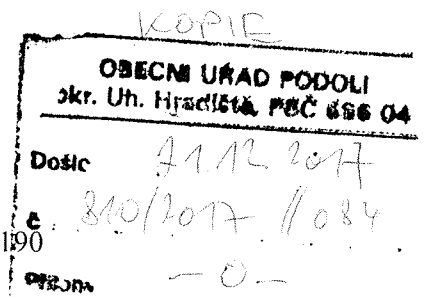 KOPIE
OBECNÍ ÚŘAD PODOLÍ
okr. Uh. Hradiště, PSČ 686 04
Došlo 21.12.2017
č 810/2017 // 084
190
Příloha — 0 —